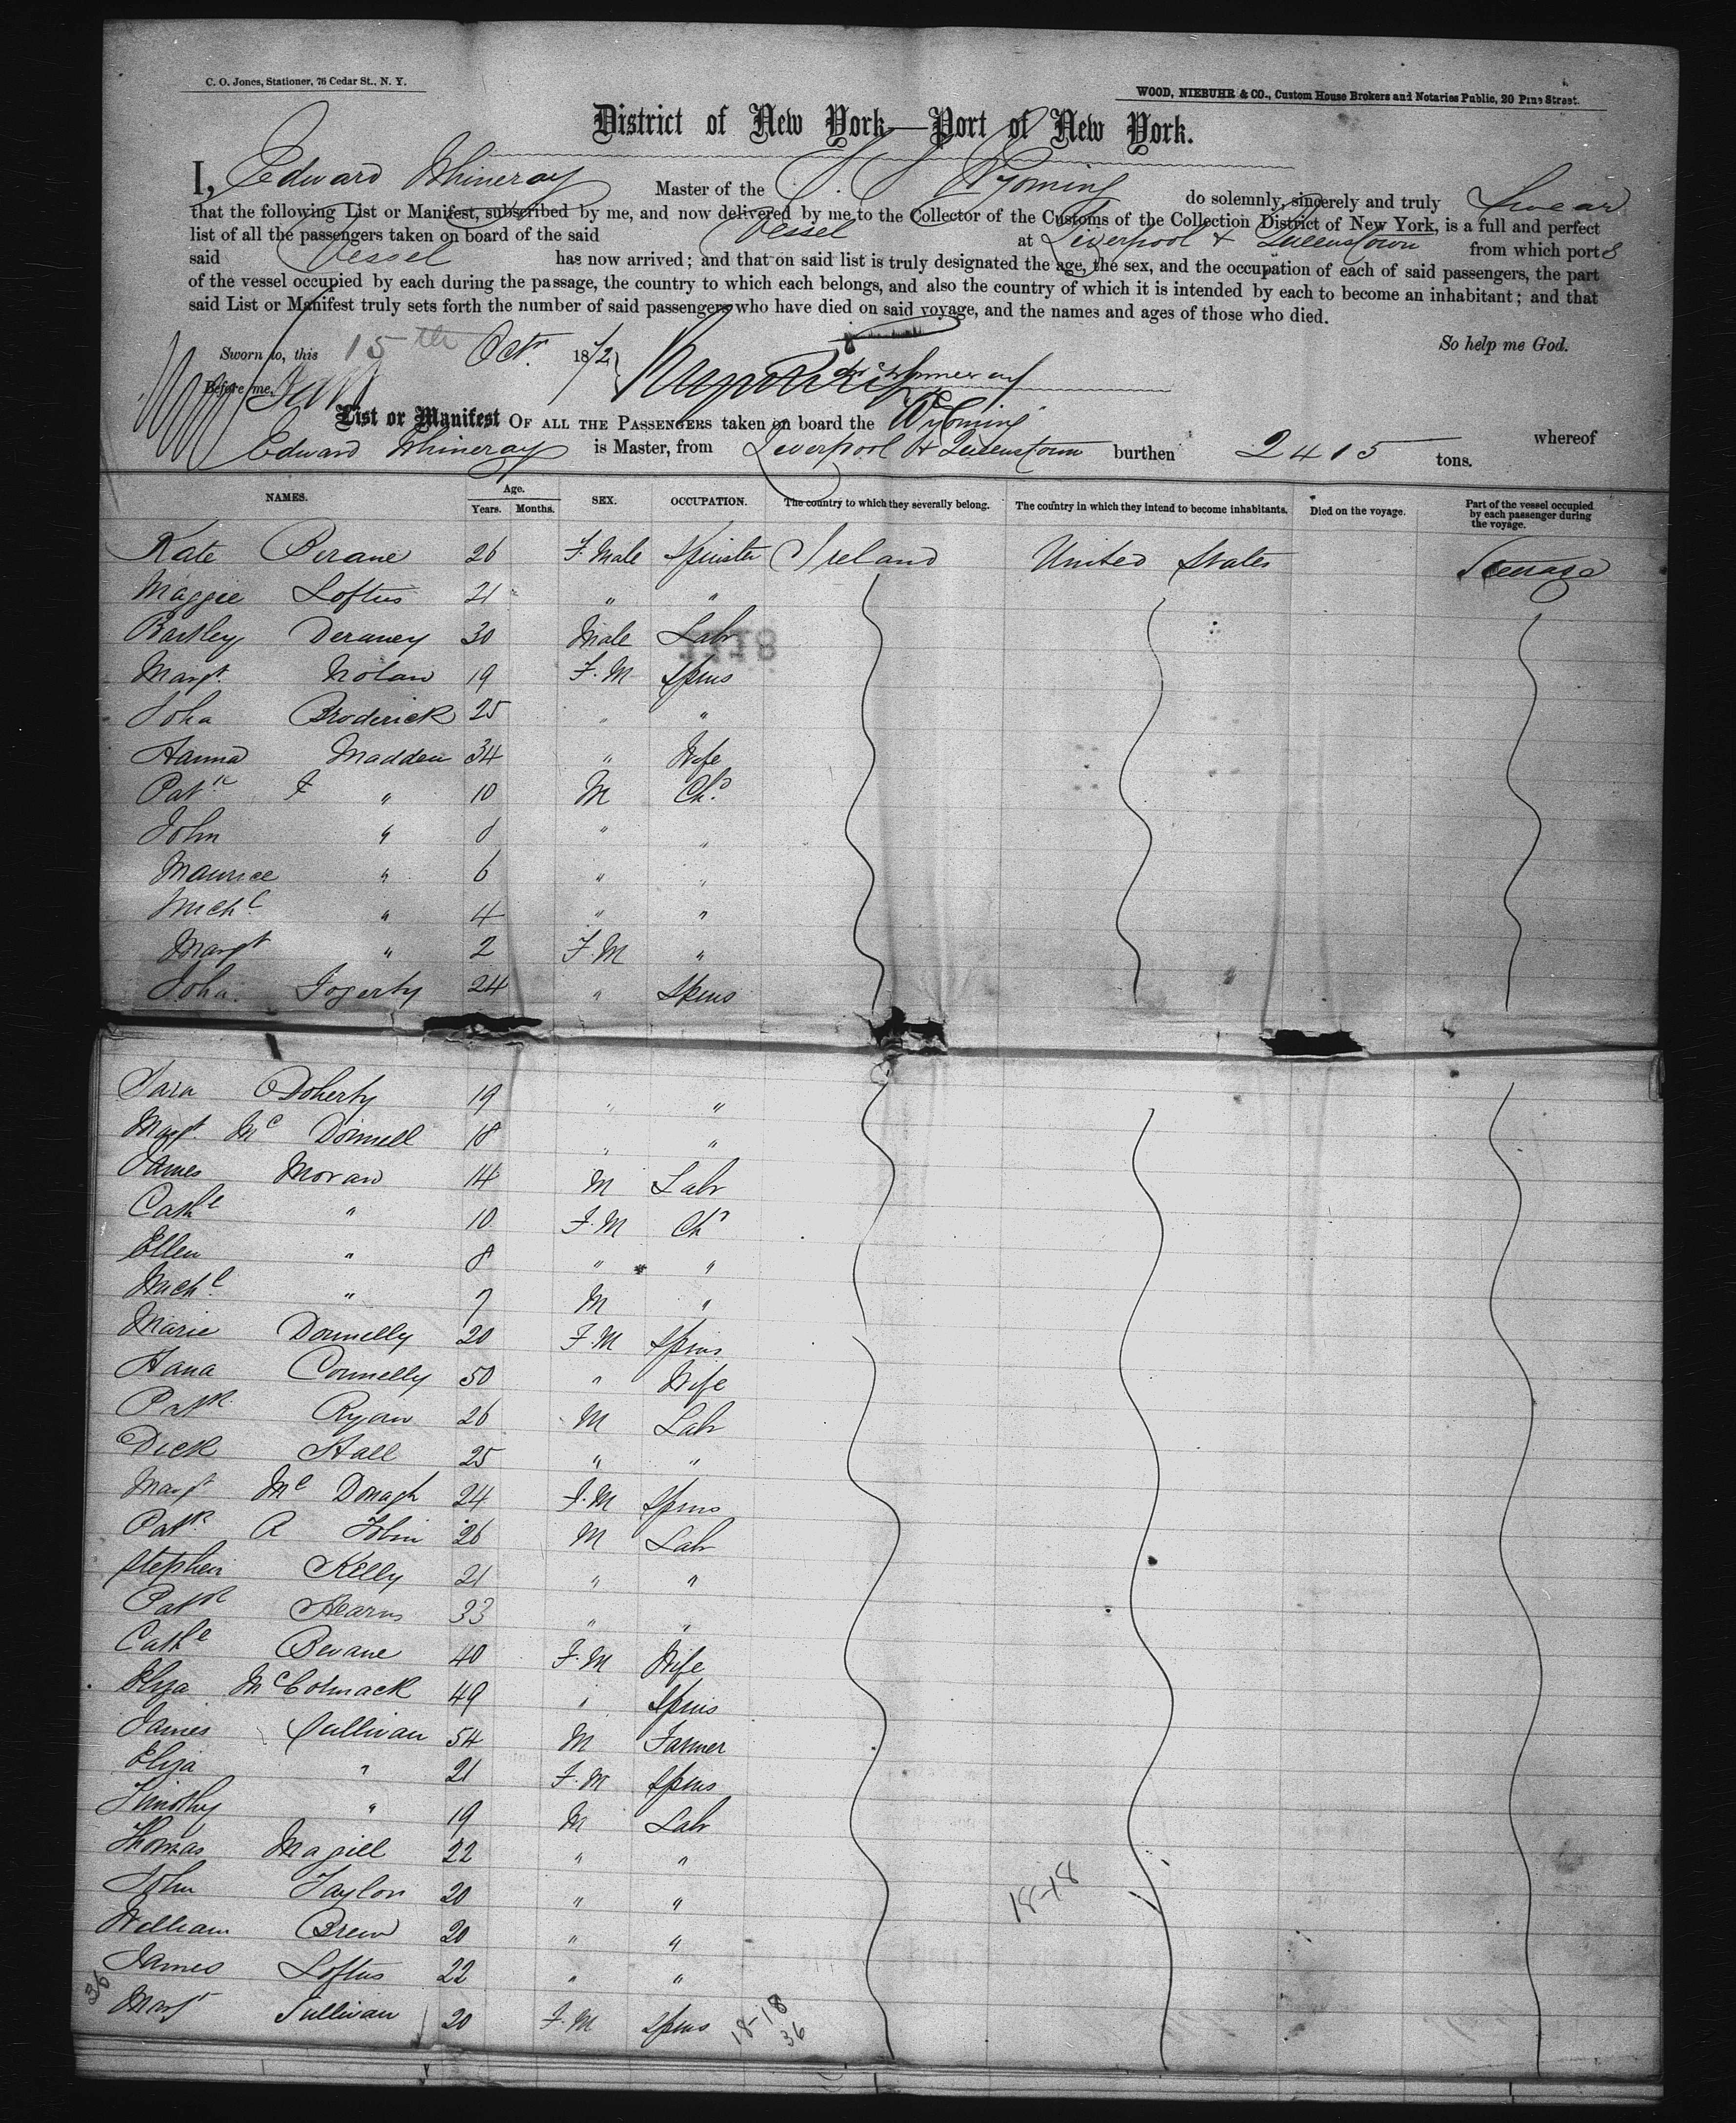 C. O. Jones, Stationer, 76 Cedar St., N. Y.
WOOD, NIEBUHR & CO., Custom House Brokers and Notaries Public, 20 Pine Street.
District of New York—Port of New York.
I, Edward Whineray Master of the S. S. Wyoming do solemnly, sincerely and truly Swear
that the following List or Manifest, subscribed by me, and now delivered by me to the Collector of the Customs of the Collection District of New York, is a full and perfect
list of all the passengers taken on board of the said Vessel at Liverpool & Queenstown from which port s
said Vessel has now arrived; and that on said list is truly designated the age, the sex, and the occupation of each of said passengers, the part
of the vessel occupied by each during the passage, the country to which each belongs, and also the country of which it is intended by each to become an inhabitant; and that
said List or Manifest truly sets forth the number of said passengers who have died on said voyage, and the names and ages of those who died.
So help me God.
Sworn to, this 15th Octr 1872
Before me,
List or Manifest OF ALL THE PASSENGERS taken on board the Wyoming whereof
Edward Whineray is Master, from Liverpool & Queenstown burthen 2415 tons.
NAMES. Age. Years. Months. SEX. OCCUPATION. The country to which they severally belong. The country in which they intend to become inhabitants. Died on the voyage. Part of the vessel occupied by each passenger during the voyage.
Kate 26 F. Male Spinster Ireland United States Steerage
Maggie Loftus 21 " "
Bartley Deraney 30 Male Labr
Margt. Nolan 19 F. M Spins
Joha Broderick 25 " "
Hanna Madden 34 " Wife
Patk " 10 M Chd
John " 8 " "
Maurice " 6 " "
Michl " 4 " "
Margt " 2 F. M "
Joha. Fogerty 24 " Spins
Sara ODoherty 19 " "
Margt. Mc Donnell 18 " "
James Moran 14 M Labr
Cathe " 10 F. M Chd
Ellen " 8 " "
Michl " 7 M "
Marie Donnelly 20 F. M Spins
Hana Connelly 50 " Wife
Patk. Ryan 26 M Labr
Dick Hall 25 " "
Margt Mc Donagh 24 F. M Spins
Patk. R Tobin 26 M Labr
Stephen Kelly 21 " "
Patk Hearns 33 " "
Cathe 40 F. M Wife
Eliza McColmack 49 " Spins
James Sullivan 54 M Farmer
Eliza " 21 F. M Spins
Timothy " 19 M Labr
Thomas Magill 22 " "
John Taylor 20 " "
18-18
William Brew 20 " "
James Loftus 22 " "
36
Margt Sullivan 20 F. M Spins
18-18
36